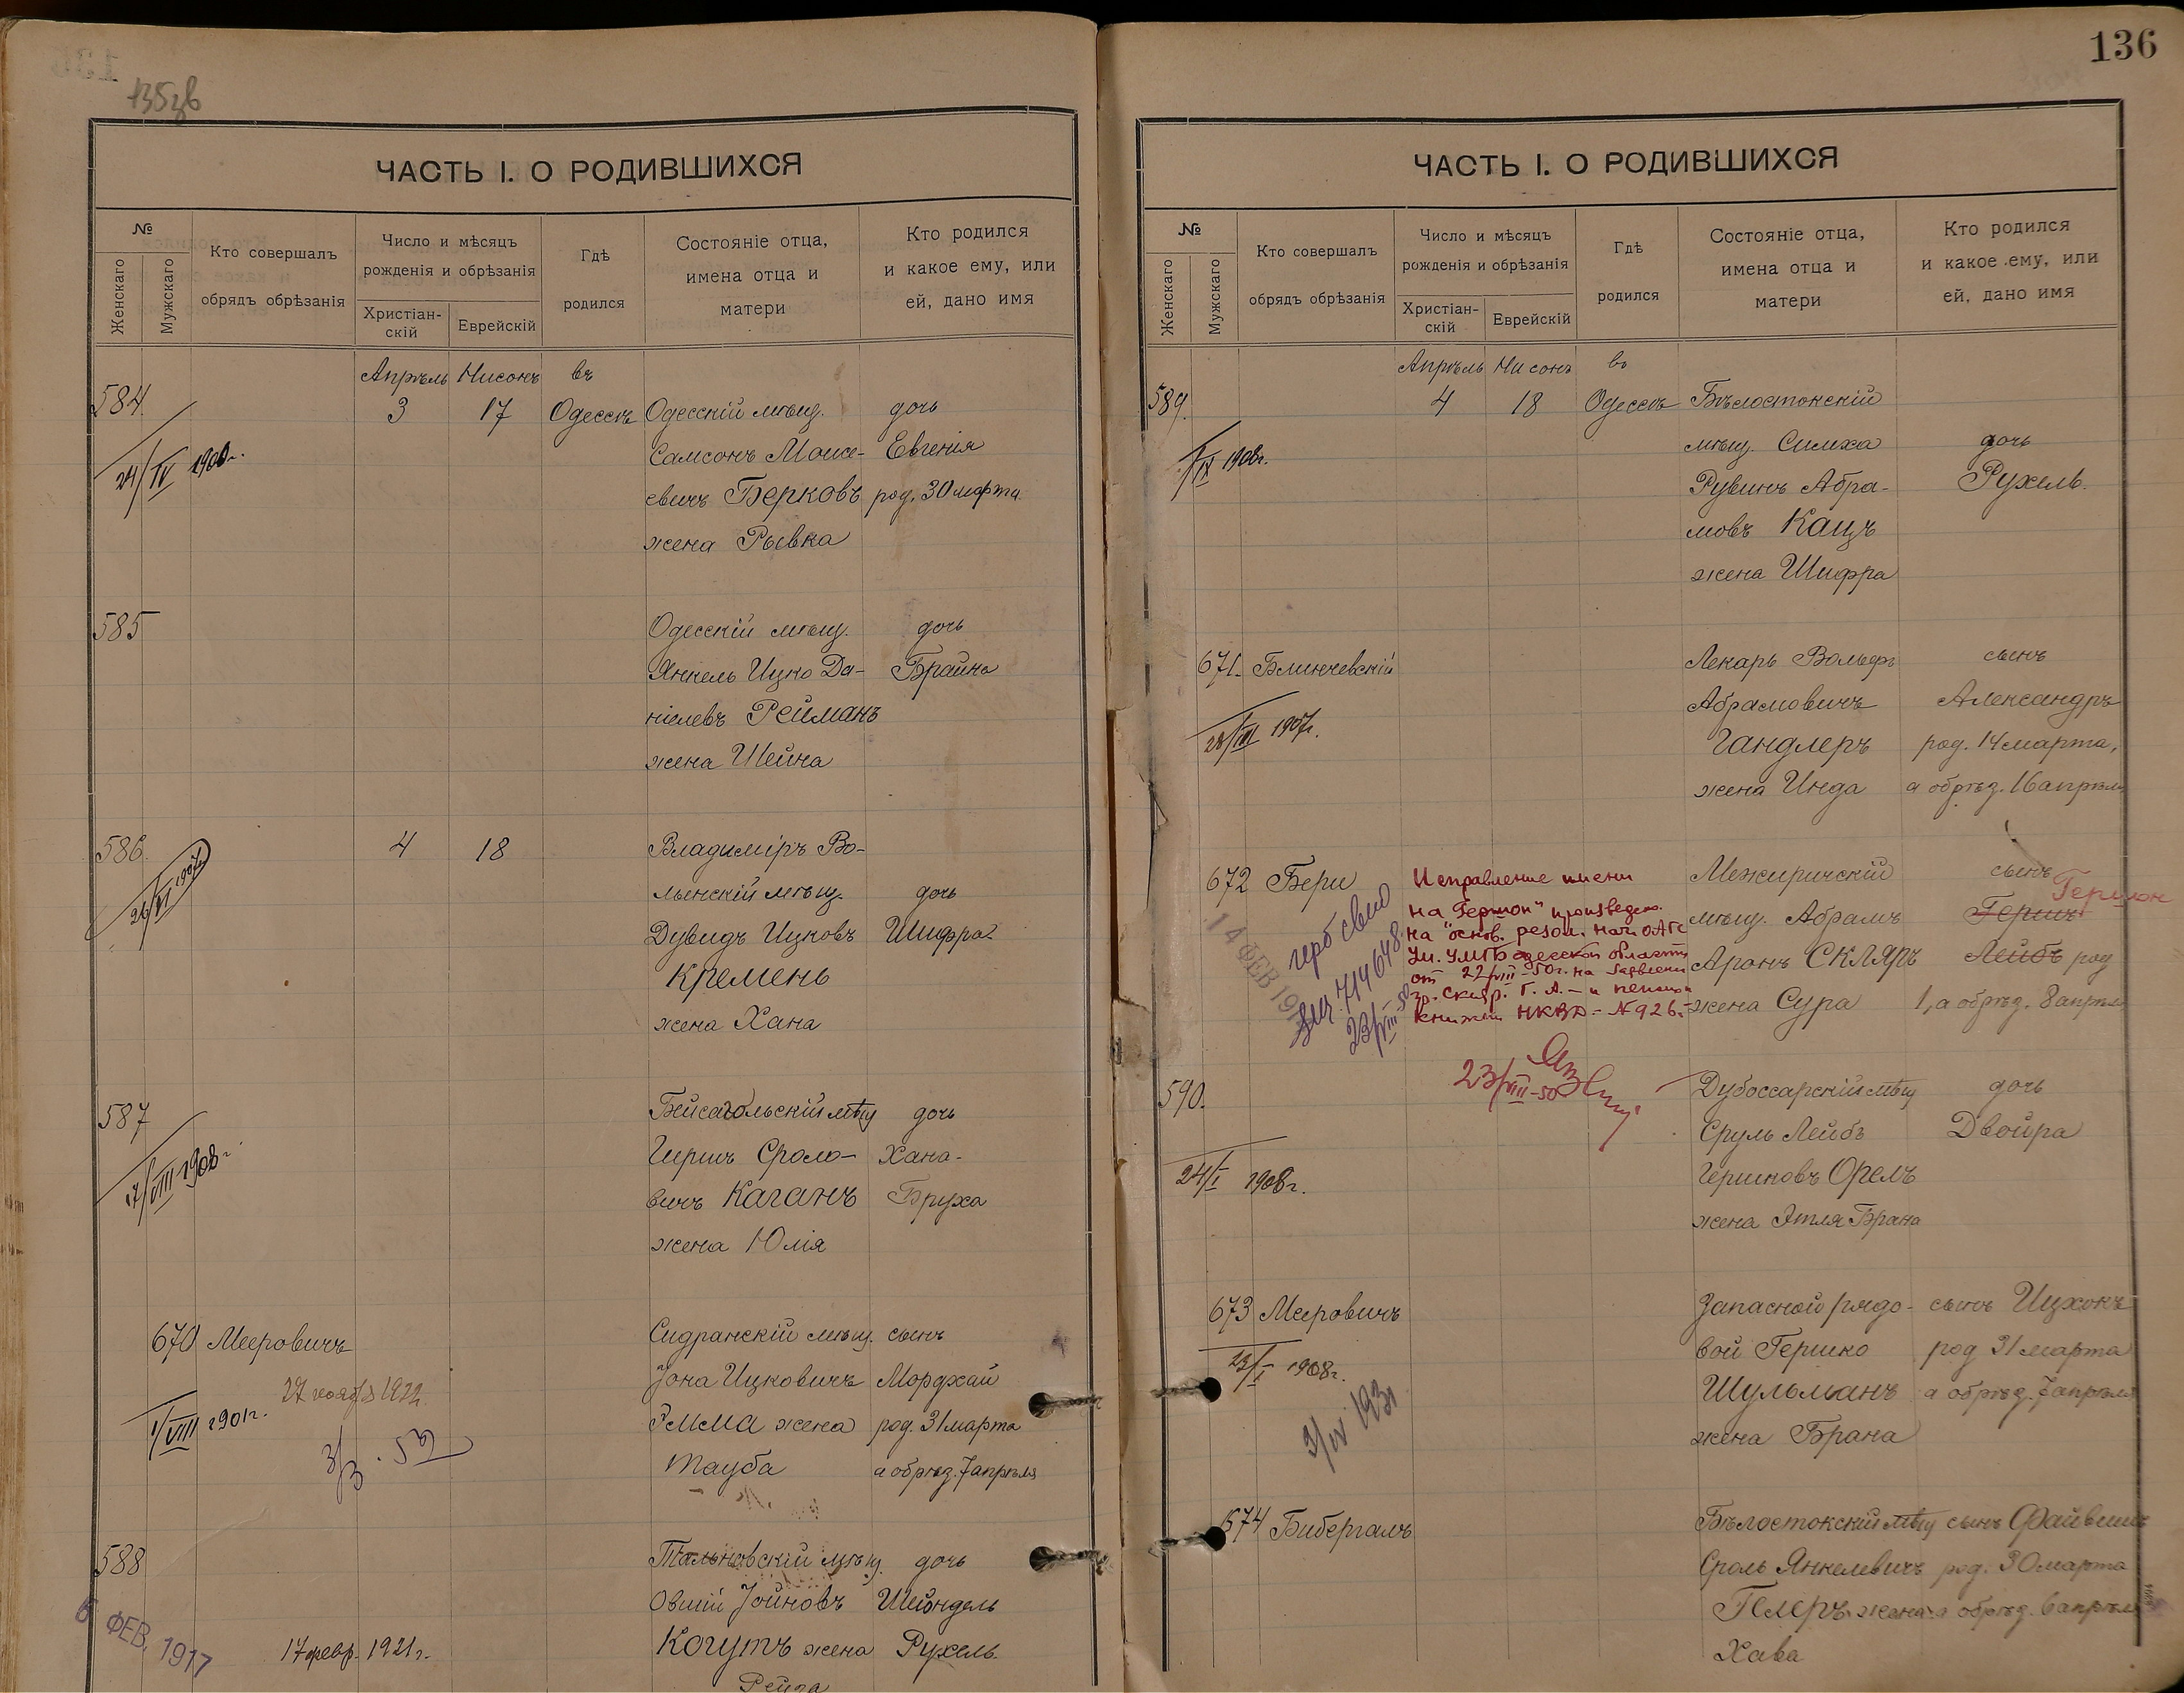 135зв
ЧАСТЬ I. О РОДИВШИХСЯ
№
Женскаго
Мужскаго
Кто совершалъ
обрядъ обрѣзанія
Число и мѣсяцъ
рожденія и обрѣзанія
Христіан-
скій
Еврейскій
Гдѣ
родился
Состояніе отца,
имена отца и
матери
Кто родился
и какое ему, или
ей, дано имя
Апрѣль Нисонъ въ
584. 3 17 Одессѣ Одесскій мѣщ. дочь
24/IV 1908г. Самсонъ Моисе- Евгенія
евичъ Берковъ род. 30 марта
жена Рывка
585 Одесскій мѣщ. дочь
Янкель Ицко Да- Брайна
ніелевъ Рейманъ
жена Шейна
586. 4 18 Владиміръ Во-
лынскій мѣщ. дочь
Дувидъ Ицковъ Шифра
Кремень
жена Хана
587 Бейсагольскій мѣщ дочь
17/VIII 1908г. Гиршъ Сроло- Хана-
вичъ Каганъ Бруха
жена Юлія
670 Мееровичъ Сидранскій мѣщ. сынъ
27 ноября 1922. Іона Ицковичъ Мордхай
1/VIII 1901г. жена род. 31 марта
3/3. 53 Тауба а обрѣз. 7 апрѣля
588 Тальновскій мѣщ. дочь
Овшій Іойновъ Шейндель
6 ФЕВ. 1917 17 февр. 1921г. Когутъ жена Рухель.
Рейза
136
ЧАСТЬ I. О РОДИВШИХСЯ
№
Женскаго
Мужскаго
Кто совершалъ
обрядъ обрѣзанія
Число и мѣсяцъ
рожденія и обрѣзанія
Христіан-
скій
Еврейскій
Гдѣ
родился
Состояніе отца,
имена отца и
матери
Кто родился
и какое ему, или
ей, дано имя
Апрѣль Нисонъ въ
589. 4 18 Одессѣ Бѣлостокскій
1908г. мѣщ. Симха дочь
Рувинъ Абра- Рухель.
мовъ Кацъ
жена Шифра
671. Блинчевскій Лекарь Вольфъ сынъ
28/III 1907г. Абрамовичъ Александръ
Гандлеръ род. 14 марта,
жена Инда а обрѣз. 16 апрѣля
672 Бери Межиричскій сынъ Гершон
мѣщ. Абрамъ Гершъ
Аронъ Скляръ Лейбъ род
жена Сура 1, а обрѣз. 8 апрѣля
Исправление имени
на "Гершон" произведено
на основ. резол. нач. ОАГС
Уп. УМГБ одесской области
от 22/VIII-50г. на заявлении
гр. Скляр. Г. А. – и пенсион
книжки НКВД – № 926.
23/VIII-50
герб свид
714648
23/VIII-50
14 ФЕВ 19
590. Дубоссарскій мѣщ дочь
Сруль Лейбъ Двойра
24/I 1908г. Гершковъ Орелъ
жена Этля Брана
673 Мееровичъ Запасной рядо- сынъ Ицхокъ
23/I 1908г. вой Гершко род 31 марта
3/IV 1931 Шульманъ а обрѣз. 7 апрѣля
жена Брана
674 Бибергалъ Бѣлостокскій мѣщ сынъ Файвешъ
Сроль Янкелевичъ род. 30 марта
Гелеръ жена а обрѣз. 6 апрѣля
Хава